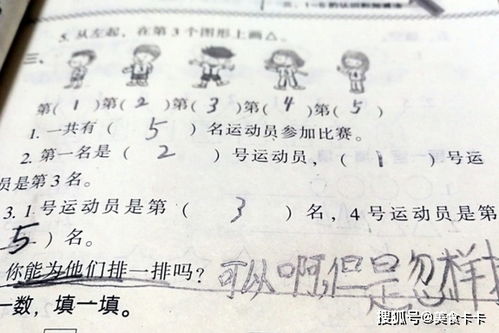 5. 从左起，在第 3 个图形上画△。
三、
第( 1 )第( 2 )第( 3 )第( 4 )第( 5 )
1. 一共有 ( 5 ) 名运动员参加比赛。
2. 第一名是 ( 2 ) 号运动员，( 1 ) 号运
员是第 3 名。
3. 1 号运动员是第 ( 3 ) 名，4 号运动员
5 ) 名。
你能为他们排一排吗？可以啊但是忽样
一数，填一填。
搜狐号@美食卡卡